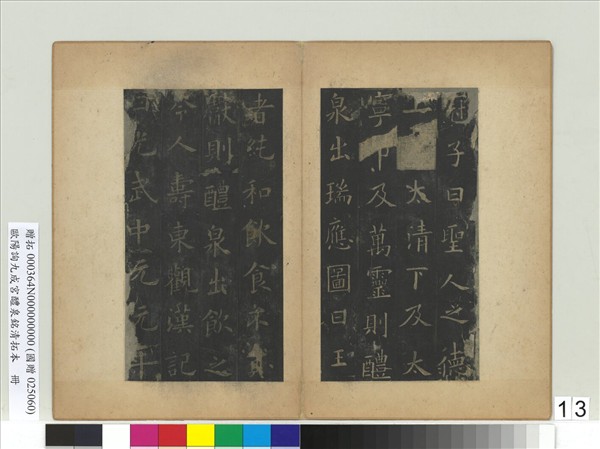 冠子曰聖人之德
太清下及太
寧中及萬靈則醴
泉出瑞應圖曰王
者純和飲食不貢
獻則醴泉出飲之
令人壽東觀漢記
曰光武中元元年
贈拓 000364N000000000 (國贈 025060)
歐陽詢九成宮醴泉銘清拓本 冊
13